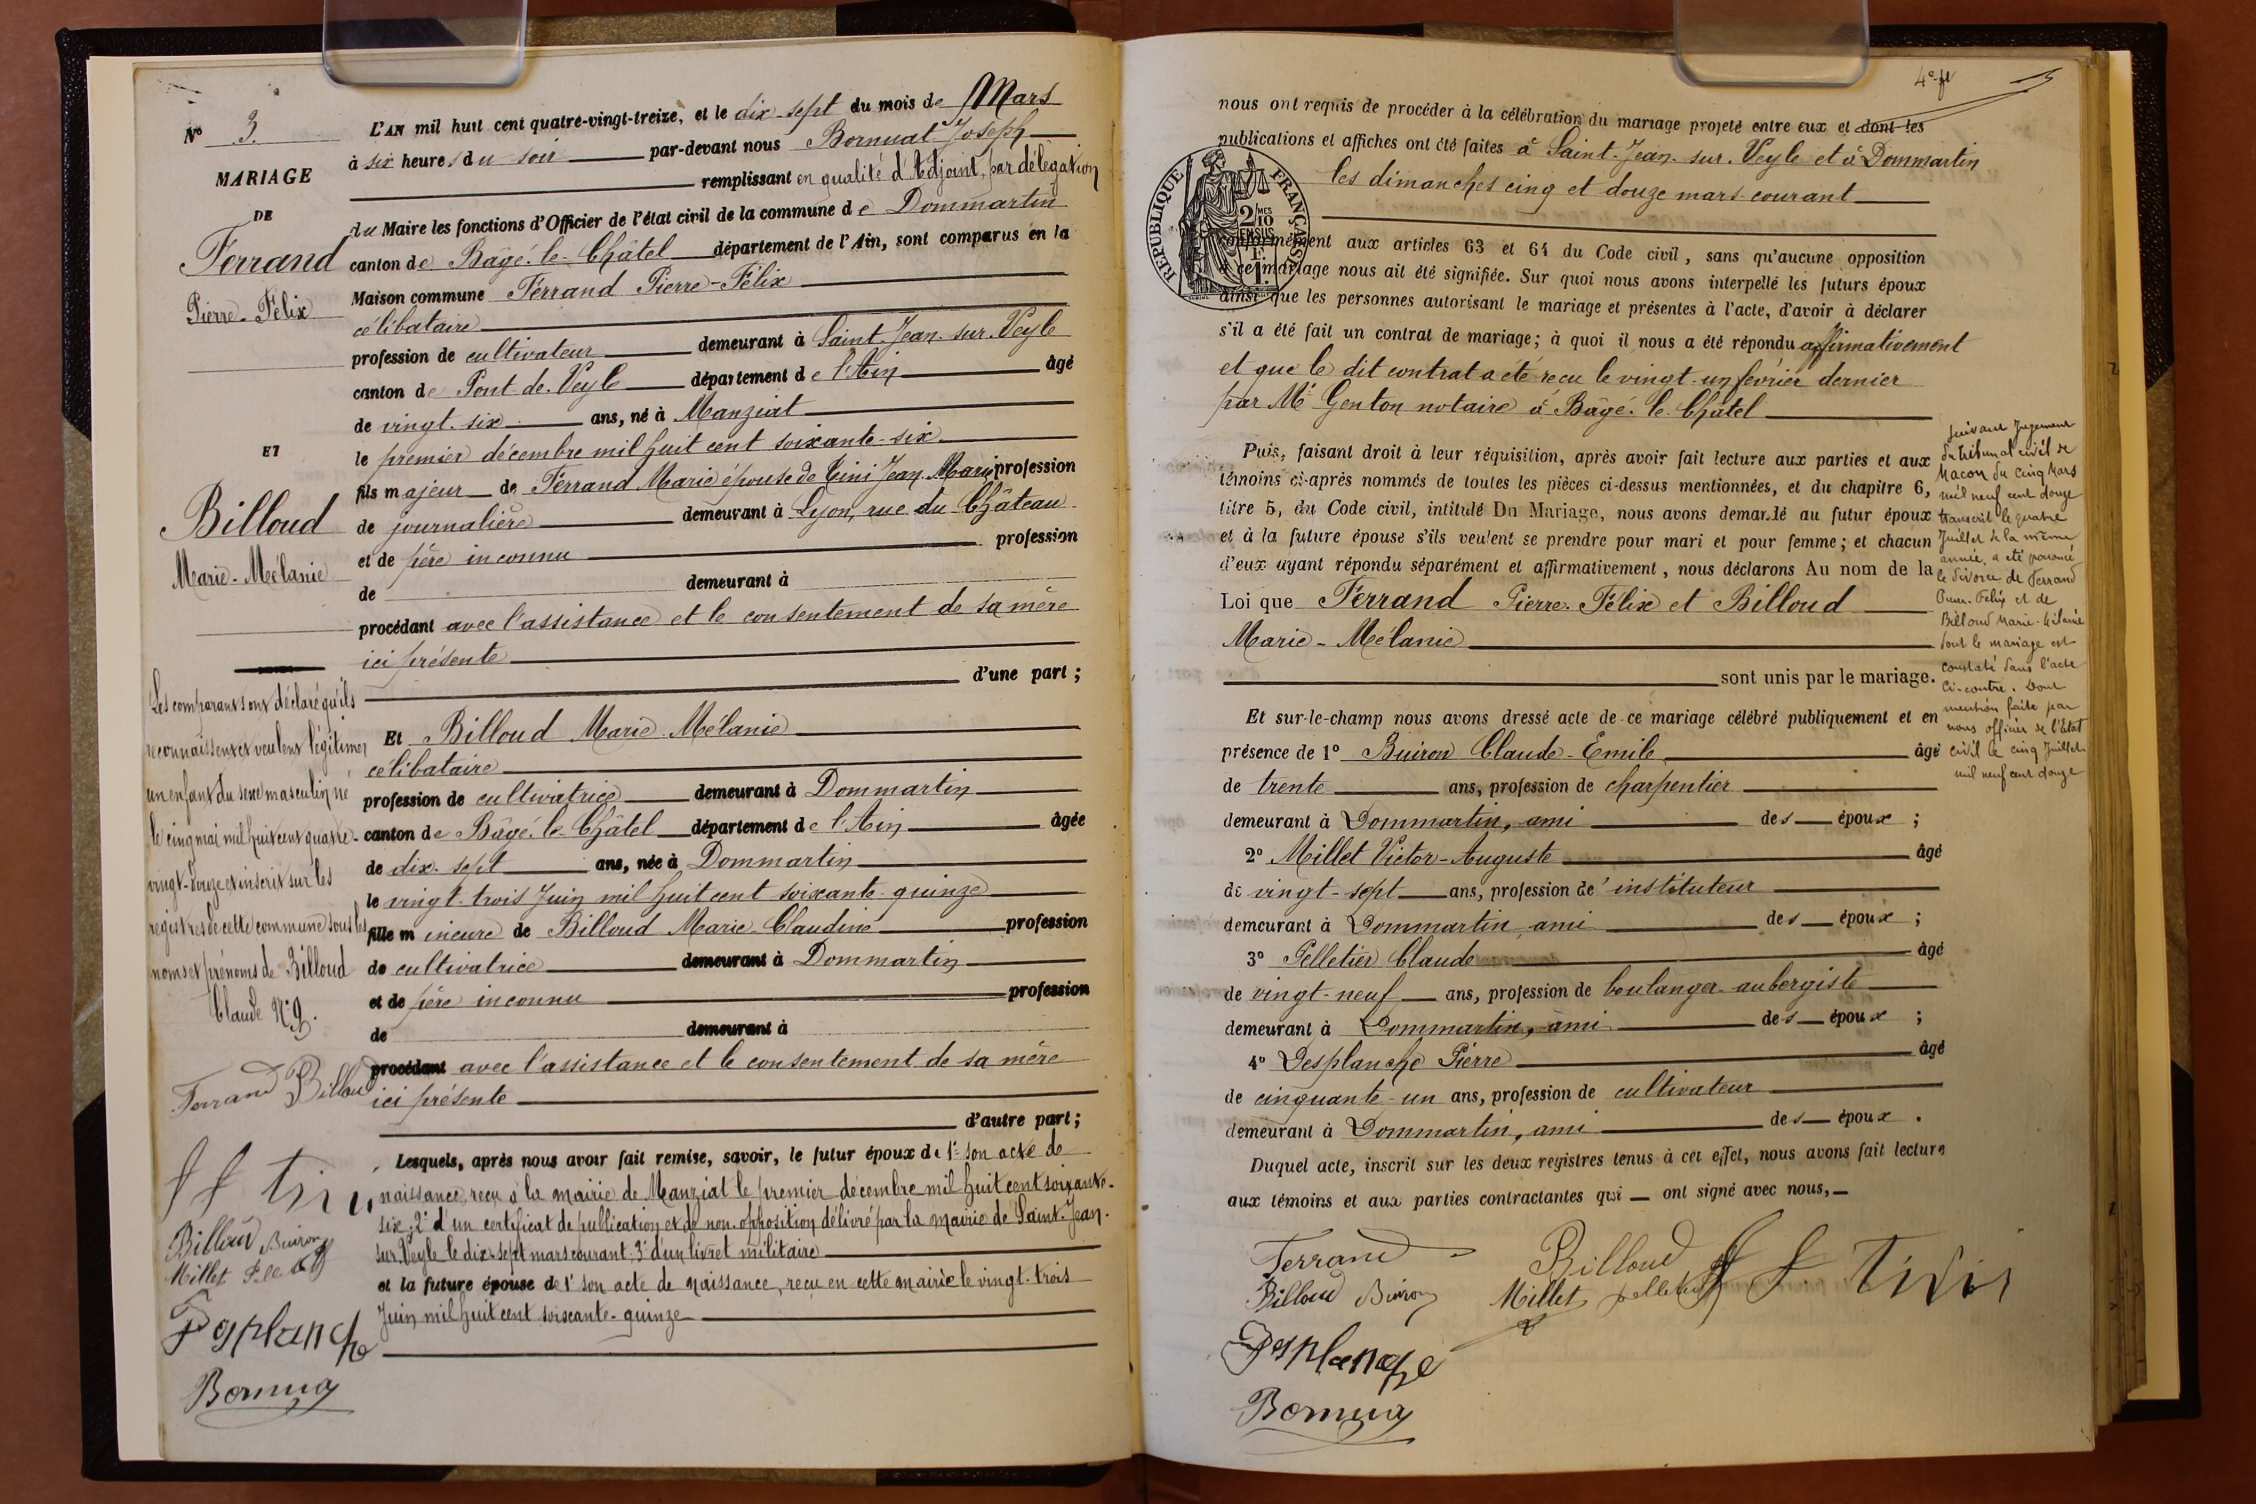 No 3.
MARIAGE
DE
Ferrand
Pierre-Félix
ET
Billoud
Marie-Mélanie
Les comparants ont déclaré qu'ils
reconnaissent et veulent légitimer
un enfant du sexe masculin né
le cinq mai mil huit cent quatre-
vingt-douze et inscrit sur les
registres de cette commune sous les
noms et prénoms de Billoud
Claude No 9.
Ferrand Billoud
Billoud Buiron
Millet Pelletier
Desplanche
Bornuat
L'AN mil huit cent quatre-vingt-treize, et le dix-sept du mois de Mars
à six heures du soir par-devant nous Bornuat Joseph
remplissant en qualité d'Adjoint, par délégation
du Maire les fonctions d'Officier de l'état civil de la commune de Dommartin
canton de Bâgé-le-Châtel département de l'Ain, sont comparus en la
Maison commune Ferrand Pierre-Félix
célibataire
profession de cultivateur demeurant à Saint-Jean-sur-Veyle
canton de Pont-de-Veyle département de l'Ain âgé
de vingt-six ans, né à Manziat
le premier décembre mil huit cent soixante-six
fils majeur de Ferrand Marie épouse de Tini Jean-Marie profession
de journalière demeurant à Lyon, rue du Château
et de père inconnu profession
de demeurant à
procédant avec l'assistance et le consentement de sa mère
ici présente
d'une part ;
Et Billoud Marie-Mélanie
célibataire
profession de cultivatrice demeurant à Dommartin
canton de Bâgé-le-Châtel département de l'Ain âgée
de dix-sept ans, née à Dommartin
le vingt-trois Juin mil huit cent soixante-quinze
fille mineure de Billoud Marie-Claudine profession
de cultivatrice demeurant à Dommartin
et de père inconnu profession
de demeurant à
procédant avec l'assistance et le consentement de sa mère
ici présente
d'autre part ;
Lesquels, après nous avoir fait remise, savoir, le futur époux de 1° son acte de
naissance, reçu à la mairie de Manziat le premier décembre mil huit cent soixante-
six; 2° d'un certificat de publication et de non-opposition délivré par la mairie de Saint-Jean-
sur-Veyle le dix-sept mars courant; 3° d'un livret militaire
et la future épouse de 1° son acte de naissance, reçu en cette mairie le vingt-trois
Juin mil huit cent soixante-quinze
4e fl
nous ont requis de procéder à la célébration du mariage projeté entre eux et dont les
publications et affiches ont été faites à Saint-Jean-sur-Veyle et à Dommartin
les dimanches cinq et douze mars courant
RÉPUBLIQUE FRANÇAISE
2/10MES
EN SUS
1 F.
conformément aux articles 63 et 64 du Code civil, sans qu'aucune opposition
à ce mariage nous ait été signifiée. Sur quoi nous avons interpellé les futurs époux
ainsi que les personnes autorisant le mariage et présentes à l'acte, d'avoir à déclarer
s'il a été fait un contrat de mariage; à quoi il nous a été répondu affirmativement
et que le dit contrat a été reçu le vingt-un février dernier
par Me Genton notaire à Bâgé-le-Châtel
Puis, faisant droit à leur réquisition, après avoir fait lecture aux parties et aux
témoins ci-après nommés de toutes les pièces ci-dessus mentionnées, et du chapitre 6,
titre 5, du Code civil, intitulé Du Mariage, nous avons demandé au futur époux
et à la future épouse s'ils veulent se prendre pour mari et pour femme; et chacun
d'eux ayant répondu séparément et affirmativement, nous déclarons Au nom de la
Loi que Ferrand Pierre-Félix et Billoud
Marie-Mélanie
sont unis par le mariage.
Et sur-le-champ nous avons dressé acte de ce mariage célébré publiquement et en
présence de 1° Buiron Claude-Emile âgé
de trente ans, profession de charpentier
demeurant à Dommartin, ami des époux ;
2° Millet Victor-Auguste âgé
de vingt-sept ans, profession d'instituteur
demeurant à Dommartin ami des époux ;
3° Pelletier Claude âgé
de vingt-neuf ans, profession de boulanger-aubergiste
demeurant à Dommartin, ami des époux ;
4° Desplanche Pierre âgé
de cinquante-un ans, profession de cultivateur
demeurant à Dommartin, ami des époux .
Duquel acte, inscrit sur les deux registres tenus à cet effet, nous avons fait lecture
aux témoins et aux parties contractantes qui ont signé avec nous,
Ferrand Billoud
Billoud Buiron Millet Pelletier
Desplanche
Bornuat
suivant Jugement
du tribunal civil de
Macon du cinq Mars
mil neuf cent douze
transcrit le quatre
Juillet de la même
année, a été prononcé
le divorce de Ferrand
Pierre-Félix et de
Billoud Marie-Mélanie
dont le mariage est
constaté dans l'acte
ci-contre. Dont
mention faite par
nous officier de l'état
civil le cinq Juillet
mil neuf cent douze